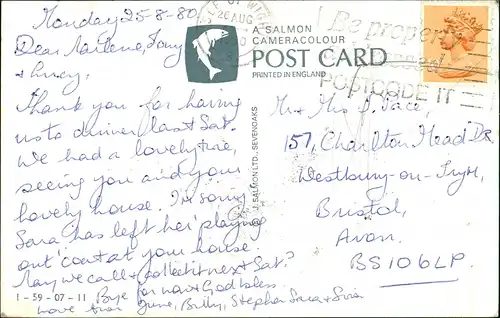 Monday 25-8-80
Dear Marlene, Tony
+ Lucy,
Thank you for having
us to dinner last Sat.
We had a lovely time,
seeing you and your
lovely house. I'm sorry
Sara has left her 'playing
out' coat at your house.
May we call + collect it next Sat?
Bye for now + God bless.
Love from June, Billy, Stephen Sara + Sira
1-59-07-11
26 AUG
A SALMON
CAMERACOLOUR
POST CARD
PRINTED IN ENGLAND
© J. SALMON LTD., SEVENOAKS
Be properly
POSTCODE IT
Mr + Mrs Pace,
157, Charlton Mead Dr
Westbury-on-Trym,
Bristol,
Avon.
BS10 6LP.